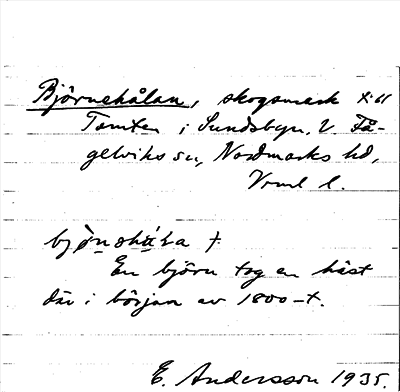 Björnehålan, skogsmark t. ll
Tomten i Sundsbyn, V. Få-
gelviks sn, Nordmarks hd,
Vrml l.
En björn tog en häst
där i början av 1800-t.
E. Andersson 1935.